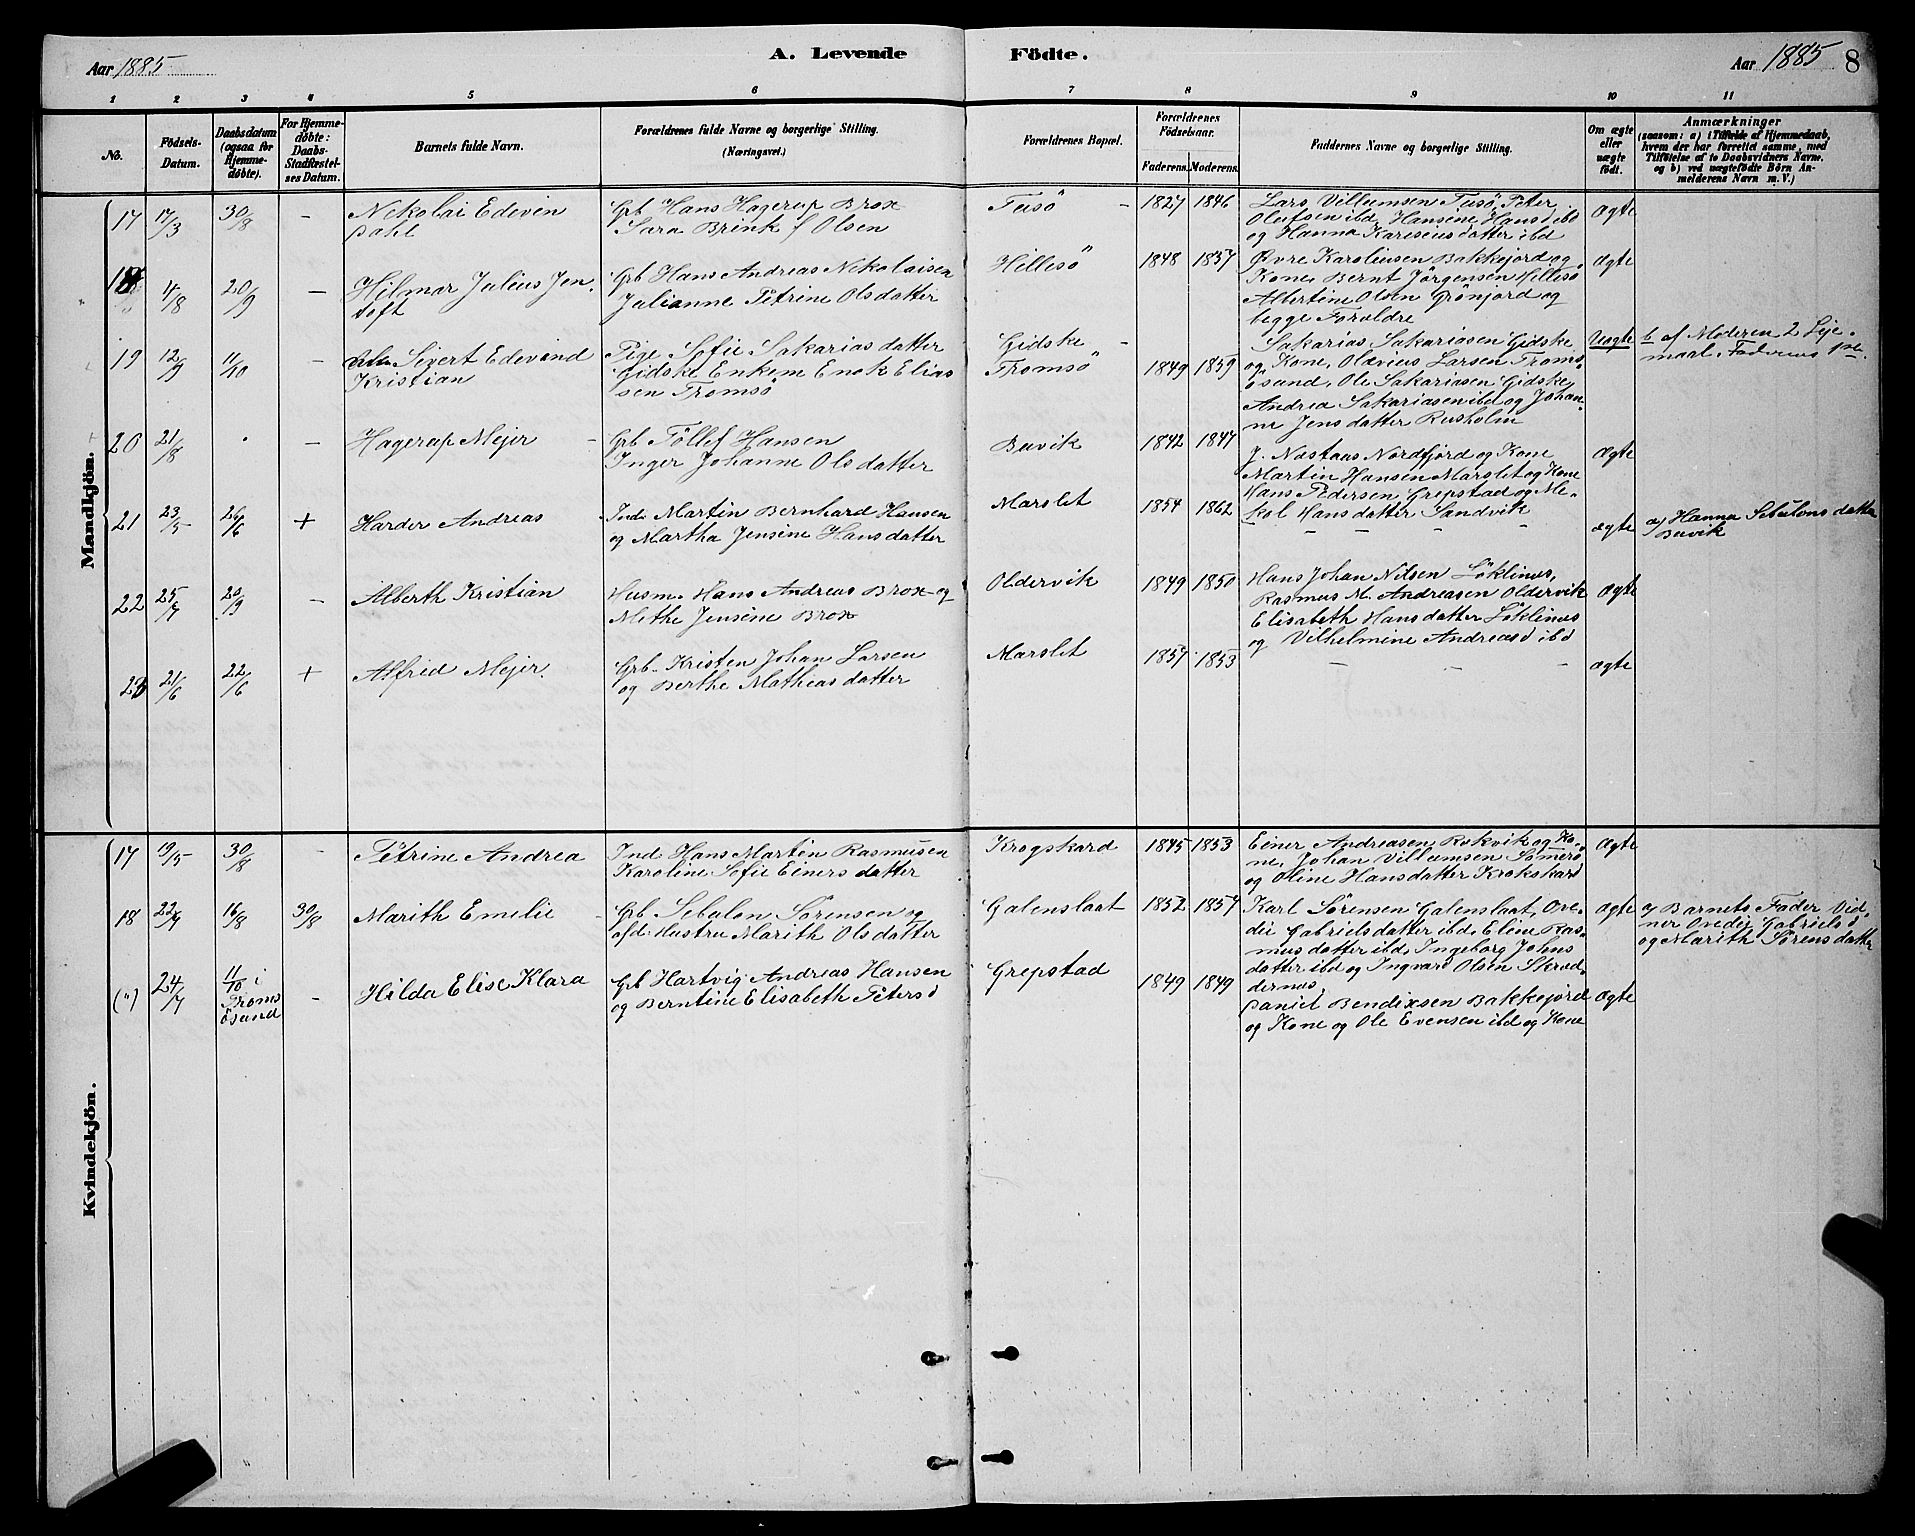 Aar 1885. A. Levende Födte. Aar 1885 8
1 2 3 4 5 6 7 8 9 10 11
No. Födsels-Datum. Daabsdatum (ogsaa for Hjemmedøbte). For Hjemmedøbte: Daabs-Stadfæstelses Datum. Barnets fulde Navn. Forældrenes fulde Navne og borgerlige Stilling. (Næringsvei.) Forældrenes Bopæl. Forældrenes Födselsaar. Faderens. Moderens. Faddernes Navne og borgerlige Stilling. Om ægte eller uægte födt. Anmærkninger (saasom: a) i Tilfælde af Hjemmedaab, hvem der har forrettet samme, med Tilföielse af to Daabsvidners Navne, og b) ved uægtefödte Börn Anmelderens Navn m. V.)
Mandkjön.
17 17/3 30/8 – Nikolai Edevin Dahl
Grb Hans Hagerup Brox
Sara Brink f Olsen
Tusö – 1827 1846
Lars Villumsen Tusö, Peter
Olufsen ibd, Hansine Hansd ibd
og Hanna Kariciusdatter ibd
Ægte
18 4/8 20/9 – Hilmar Julius Jentoft
Grb Hans Andreas Nikolaisen
Julianne Petrine Olsdatter
Hillesö 1848 1837
Øvre Karoliusen Bakkejord og
Kone, Bernt Jörgensen Hillesö
Albertine Olsen Grönjord og
begge Forældre
Ægte
19 12/9 11/10 – Sivert Edevind
Kristian
Pige Sofie Sakariasdatter
Gidske Enkem Enok Elias
sen Tromsö
Gidske –
Tromsö 1849 1859
Sakarias Sakariasen Gidske
og Kone, Olavius Larsen Troms
ösund, Ole Sakariasen Gidske,
Andrea Sakariasen ibd og Johan-
ne Jensdatter Rusholm
Uægte
b af Moderen 2 Leje-
maal, Faderens 1ste
20 21/8 . – Hagerup Mejer –
Grb Töllef Hansen
Inger Johanne Olsdatter
Buvik 1842 1847
J. Næstaas Nordfjord og Kone
Martin Hansen Marslet og Kone
Hans Pedersen Grepstad og Ni-
kol Hansdatter Sandvik
Ægte
21 23/5 26/6 + Harder Andreas
Ind. Martin Bernhard Hansen
og Martha Jensine Hansdatter
Marslet 1854 1862
– – – –
ægte
a) Hanna Sebulonsdatter
Buvik
22 25/7 20/9 – Alberth Kristian
Husm. Hans Andreas Brox og
Methe Jensine Brox
Oldervik 1849 1850
Hans Johan Nilsen Löklines,
Rasmus M. Andreasen Oldervik
Elisabeth Hansdatter Löklines
og Vilhelmine Andreasd ibd
Ægte
23 21/6 22/6 + Alfrid Mejer.
Grb. Kristen Johan Larsen
og Berthe Mathiasdatter
Marslet 1857 1853
– – –
Ægte
Kvindekjön.
17 19/5 30/8 – Petrine Andrea
Ind. Hans Martin Rasmusen
Karoline Sofie Einersdatter
Krogskard 1845 1853
Einer Andreasen Rekvik og Ko-
ne, Johan Villumsen Somerö
og Oline Hansdatter Krokskard
Ægte
18 22/7 16/8 30/8 Marith Emelie –
Grb Sebulon Sörensen og
afd. Hustru Marith Olsdatter
Galenslaat 1852 1857
Karl Sörensen Galenslaat, Ove-
die Gabrielsdatter ibd, Eline Ras-
musdatter ibd, Ingeborg Johns
datter ibd og Ingvard Olsen Skred-
dernes,
Ægte
a) Barnets Fader Vid-
ner Ovedie Gabrielsd
og Marith Sörensdatter
(") 24/7 11/10 i
Troms
ösund – Hilda Elise Klara
Grb Hartvig Andreas Hansen
og Berntine Elisabeth Petersd
Grepstad 1849 1849
Daniel Bendixsen Bakkejord
og Kone og Ole Evensen ibd og Kone
Ægte